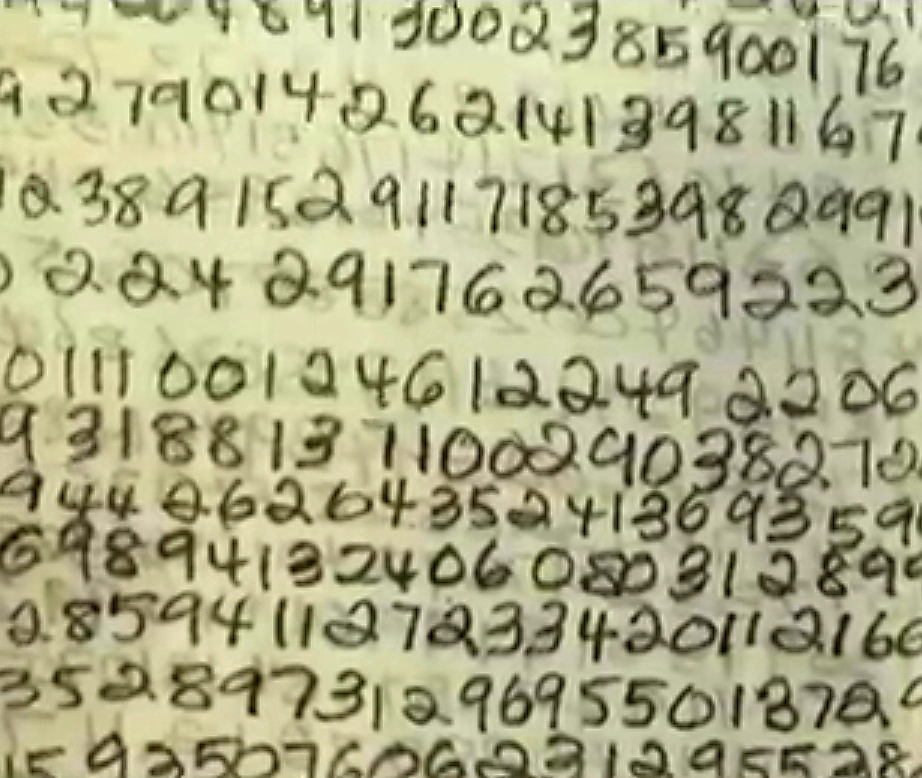 4891 30023 85900176
9279014262141398116 7
1238915291171853982991
0224 29176265922 3
01111001246122492206
9318813 11002903827 12
944 262643524136 93 59
698941324060803128 99
2859411272334201121 66
35289731296955018 72 9
15925076062312955 28